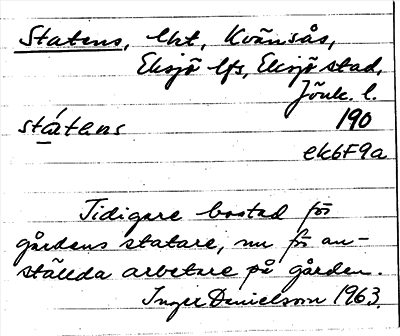 Statens, lht, Kvänsås,
Eksjö lfs, Eksjö stad,
Jönk. l.
státens 190
ek6F9a
Tidigare bostad för
gårdens statare, nu för an-
ställda arbetare på gården.
Inger Danielsson 1963.